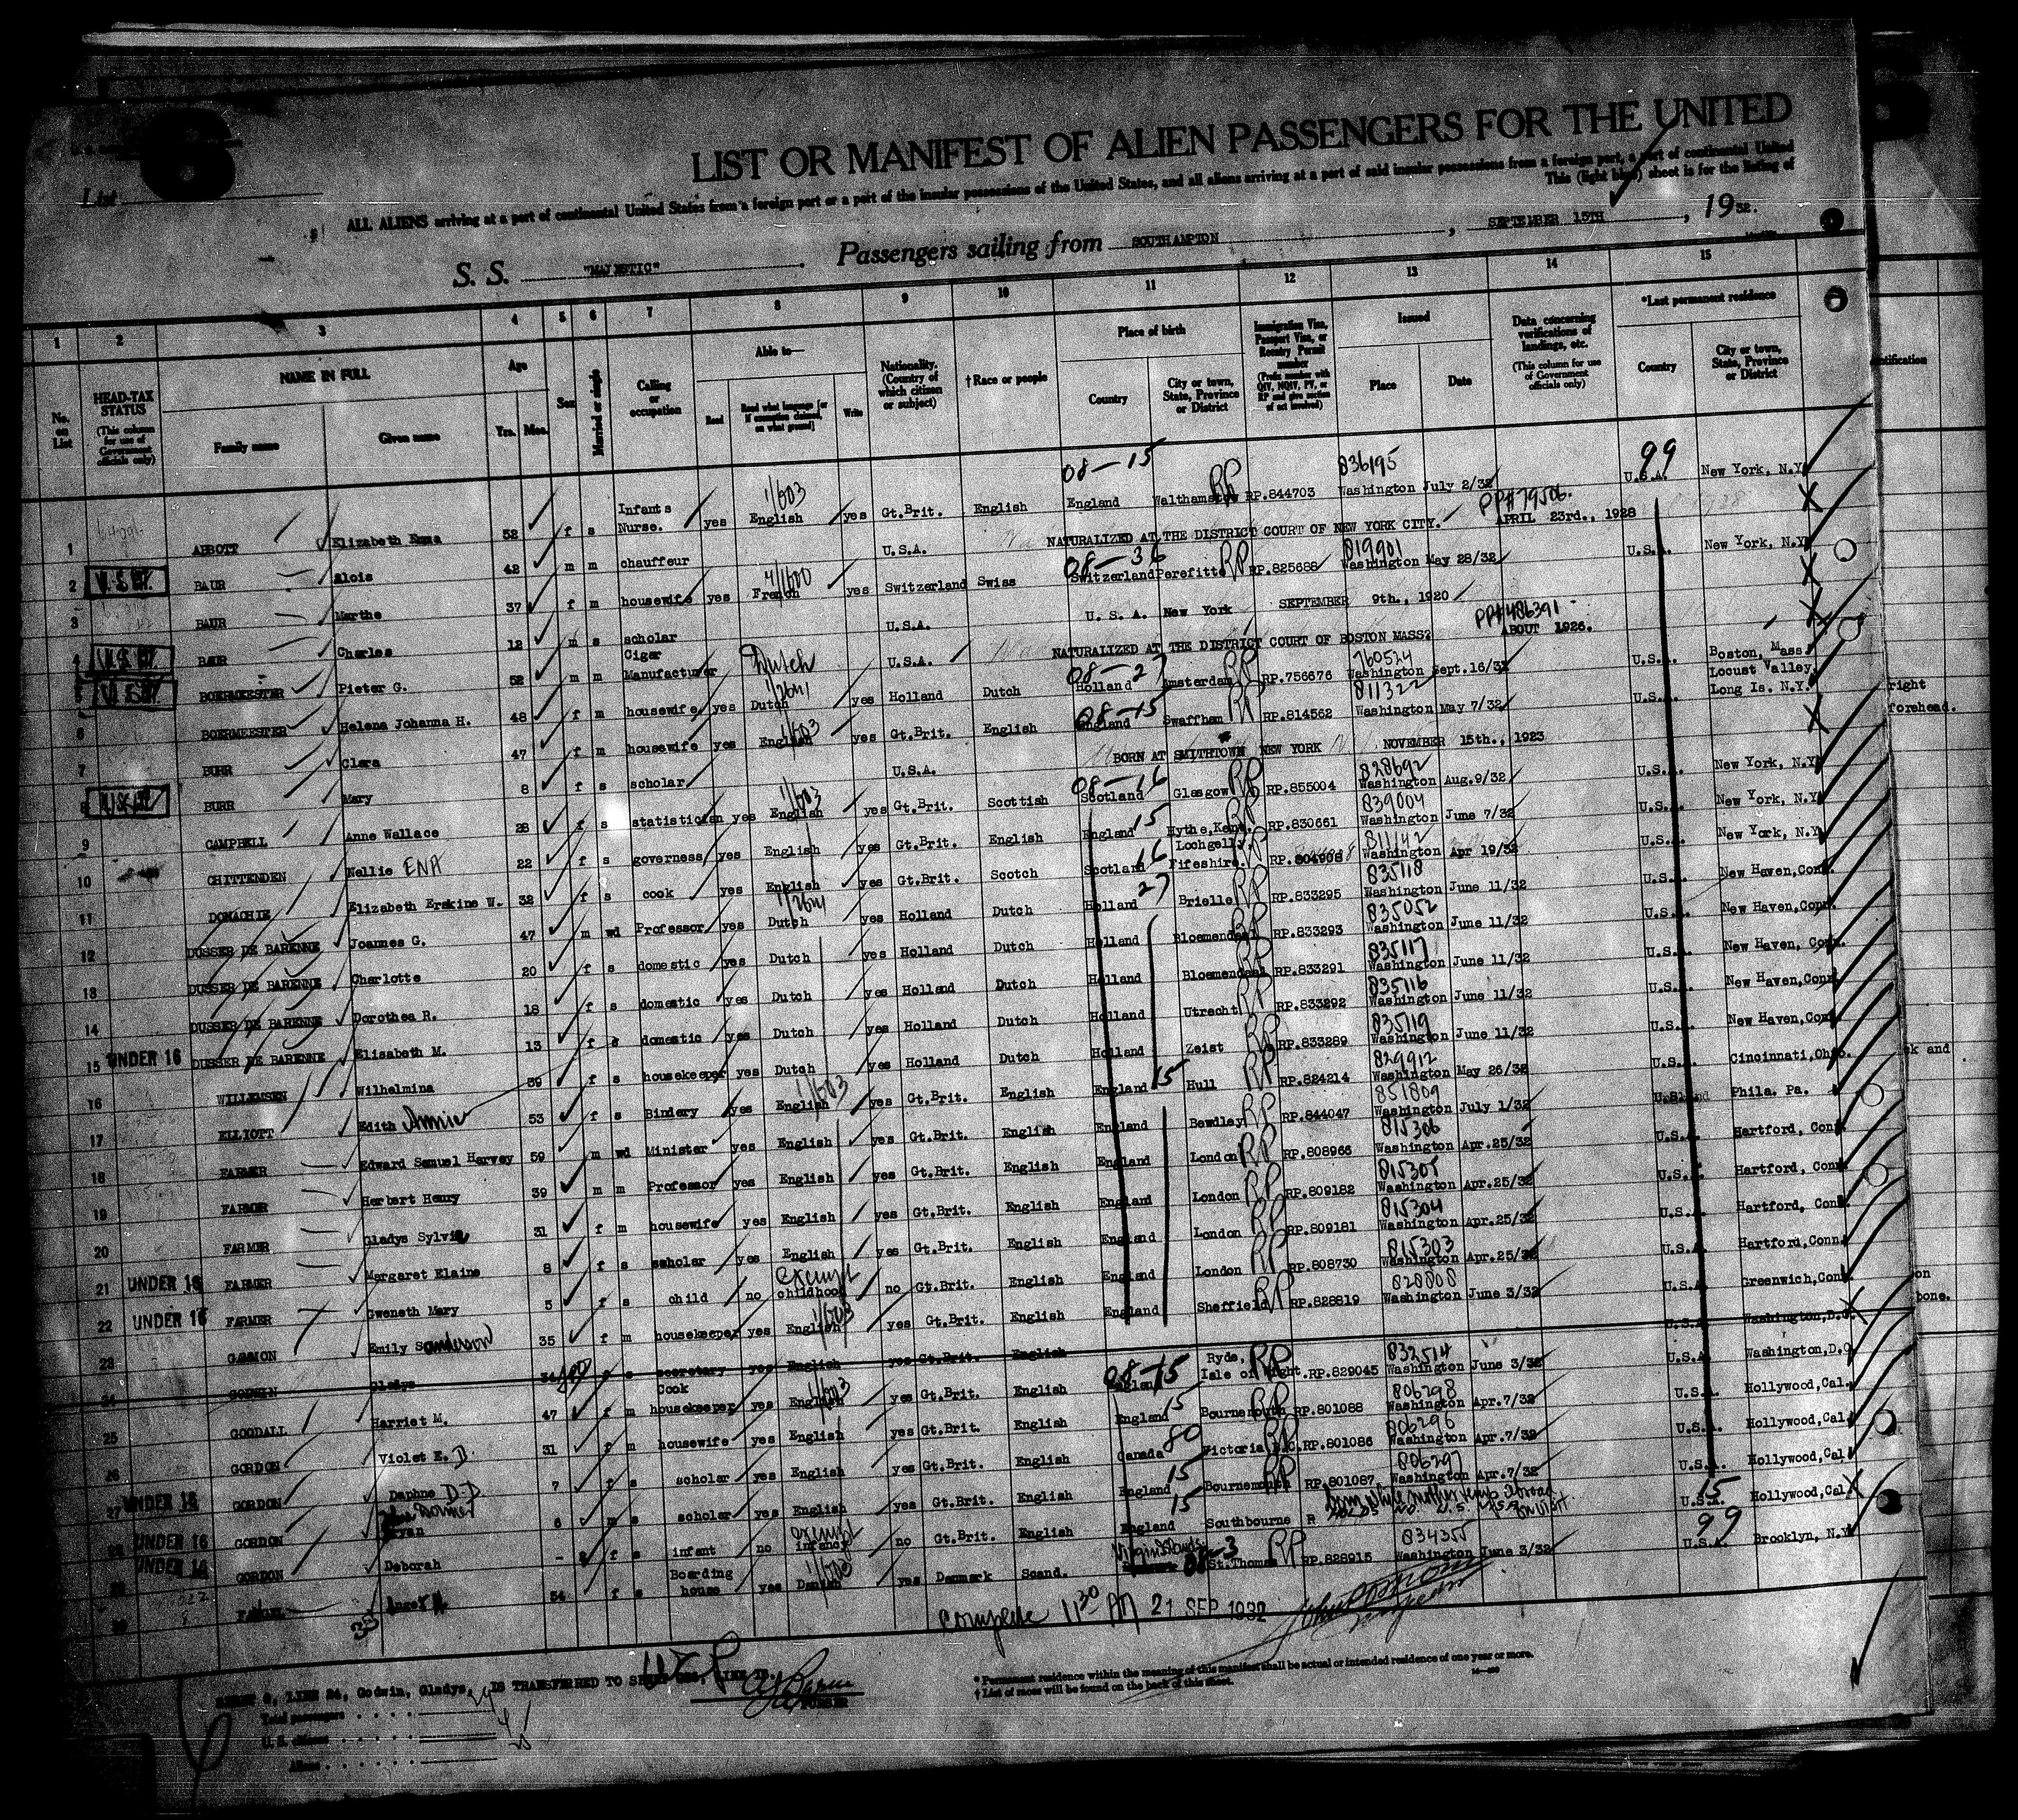 6
List
LIST OR MANIFEST OF ALIEN PASSENGERS FOR THE UNITED
ALL ALIENS arriving at a port of continental United States from a foreign port or a port of the insular possessions of the United States, and all aliens arriving at a port of said insular possessions from a foreign port, a port of continental United
This (light blue) sheet is for the listing of
S. S. "MAJESTIC" Passengers sailing from SOUTHAMPTON , SEPTEMBER 15TH , 1932.
1 2 3 4 5 6 7 8 9 10 11 12 13 14 15
No. on List
HEAD-TAX STATUS (This column for use of Government officials only)
NAME IN FULL
Family name Given name
Age Yrs. Mos.
Sex
Married or single
Calling or occupation
Able to—
Read Read what language [or if exemption claimed, on what ground] Write
Nationality. (Country of which citizen or subject)
†Race or people
Place of birth
Country City or town, State, Province or District
Immigration Visa, Passport Visa, or Reentry Permit number (Prefix number with QIV, NQIV, PV, or RP and give section of act involved)
Issued
Place Date
Data concerning verifications of landings, etc. (This column for use of Government officials only)
*Last permanent residence
Country City or town, State, Province or District
08-15 836195 99
1 ABBOTT Elizabeth Emma 52 f s Infants Nurse. yes English yes Gt.Brit. English England Walthamstow RP RP.844703 Washington July 2/32 U.S.A. New York, N.Y.
NATURALIZED AT THE DISTRICT COURT OF NEW YORK CITY. PP#79506. APRIL 23rd., 1928
2 BAUR Alois 42 m m chauffeur U.S.A.
08-36 819901
3 BAUR Marthe 37 f m housewife yes French yes Switzerland Swiss Switzerland Perefitte RP RP.825688 Washington May 28/32 U.S.A. New York, N.Y.
4 BAUR Charles 12 m s scholar U.S.A. U. S. A. New York SEPTEMBER 9th., 1920
NATURALIZED AT THE DISTRICT COURT OF BOSTON MASS? PP#486391 ABOUT 1926.
5 BOERMEESTER Pieter G. 52 m m Cigar Manufacturer U.S.A.
Dutch 08-27 760524
6 BOERMEESTER Helena Johanna H. 48 f m housewife yes Dutch yes Holland Dutch Holland Amsterdam RP RP.756676 Washington Sept.16/31 U.S.A. Boston, Mass.
08-15 811322
7 BURR Clara 47 f m housewife yes English yes Gt.Brit. English England Swaffham RP RP.814562 Washington May 7/32 U.S.A. Locust Valley, Long Is. N.Y.
8 BURR Mary 8 f s scholar U.S.A. BORN AT SMITHTOWN NEW YORK NOVEMBER 15th., 1923
08-16 828692
9 CAMPBELL Anne Wallace 28 f s statistician yes English yes Gt.Brit. Scottish Scotland Glasgow RP RP.855004 Washington Aug.9/32 U.S.A. New York, N.Y.
15 839004
10 CHITTENDEN Nellie ENA 22 f s governess yes English yes Gt.Brit. English England Hythe,Kent. RP RP.830661 Washington June 7/32 U.S.A. New York, N.Y.
16 811142
11 DONACHIE Elizabeth Erskine W. 32 f s cook yes English yes Gt.Brit. Scotch Scotland Lochgelly, Fifeshire. RP RP.804908 Washington Apr 19/32 U.S.A. New York, N.Y.
27 835118
12 DUSSER DE BARENNE Joannes G. 47 m wd Professor yes Dutch yes Holland Dutch Holland Brielle RP RP.833295 Washington June 11/32 U.S.A. New Haven,Conn.
835052
13 DUSSER DE BARENNE Charlotte 20 f s domestic yes Dutch yes Holland Dutch Holland Bloemendaal RP RP.833293 Washington June 11/32 U.S.A. New Haven,Conn.
835117
14 DUSSER DE BARENNE Dorothea R. 18 f s domestic yes Dutch yes Holland Dutch Holland Bloemendaal RP RP.833291 Washington June 11/32 U.S.A. New Haven, Conn.
835116
15 UNDER 16 DUSSER DE BARENNE Elisabeth M. 13 f s domestic yes Dutch yes Holland Dutch Holland Utrecht RP RP.833292 Washington June 11/32 U.S.A. New Haven,Conn.
835119
16 WILLEMSEN Wilhelmina 39 f s housekeeper yes Dutch yes Holland Dutch Holland Zeist RP RP.833289 Washington June 11/32 U.S.A. New Haven,Conn.
15 829912
17 ELLIOTT Edith Annie 53 f s Bindery yes English yes Gt.Brit. English England Hull RP RP.824214 Washington May 26/32 U.S.A. Cincinnati,Ohio.
851809
18 FARMER Edward Samuel Harvey 59 m wd Minister yes English yes Gt.Brit. English England Bewdley RP RP.844047 Washington July 1/32 Phila. Pa.
815306
19 FARMER Herbert Henry 39 m m Professor yes English yes Gt.Brit. English England London RP RP.808966 Washington Apr.25/32 U.S.A. Hartford, Conn.
815305
20 FARMER Gladys Sylvia 31 f m housewife yes English yes Gt.Brit. English England London RP RP.809182 Washington Apr.25/32 U.S.A. Hartford, Conn.
815304
21 UNDER 16 FARMER Margaret Elaine 8 f s scholar yes English yes Gt.Brit. English England London RP RP.809181 Washington Apr.25/32 U.S.A. Hartford, Conn.
815303
22 UNDER 16 FARMER Gweneth Mary 5 f s child no exempt childhood no Gt.Brit. English England London RP RP.808730 Washington Apr.25/32 U.S.A. Hartford,Conn.
828808
23 GAMMON Emily Sanderson 35 f m housekeeper yes English yes Gt.Brit. English England Sheffield RP RP.828819 Washington June 3/32 U.S.A. Greenwich,Conn.
24 GODWIN Gladys 34 f s secretary yes English yes Gt.Brit. English U.S.A. Washington,D.C.
08-15 832514
25 GOODALL Harriet M. 47 f m Cook housekeeper yes English yes Gt.Brit. English England Ryde, Isle of Wight. RP RP.829045 Washington June 3/32 U.S.A. Washington,D.C.
15 806298
26 GORDON Violet E. D 31 f m housewife yes English yes Gt.Brit. English England Bournemouth RP.801088 Washington Apr.7/32 U.S.A. Hollywood,Cal.
80 806296
27 UNDER 16 GORDON Daphne D-D 7 f s scholar yes English yes Gt.Brit. English Canada Victoria B.C. RP RP.801086 Washington Apr.7/32 U.S.A. Hollywood,Cal.
15 806297
28 UNDER 16 GORDON Bryan 6 m s scholar yes English yes Gt.Brit. English England Bournemouth RP RP.801087. Washington Apr.7/32 U.S.A. Hollywood,Cal
15 Born while mother temp abroad
29 UNDER 16 GORDON Deborah f s infant no exempt infancy no Gt.Brit. English England Southbourne U.S.A. Hollywood,Cal.
Virgin Islands 08-3 834355 99
30 54 f s Boarding house yes Danish yes Denmark Scand. St.Thomas RP RP.828915 Washington June 3/32 U.S.A. Brooklyn, N.Y.
complete 11 30 21 SEP 1932
SHEET 6, LINE 24, Godwin, Gladys, IS TRANSFERRED TO
PURSER
Total passengers
U. S. citizens
Aliens
* Permanent residence within the meaning of this manifest shall be actual or intended residence of one year or more.
† List of races will be found on the back of this sheet.
right
forehead.
bone.